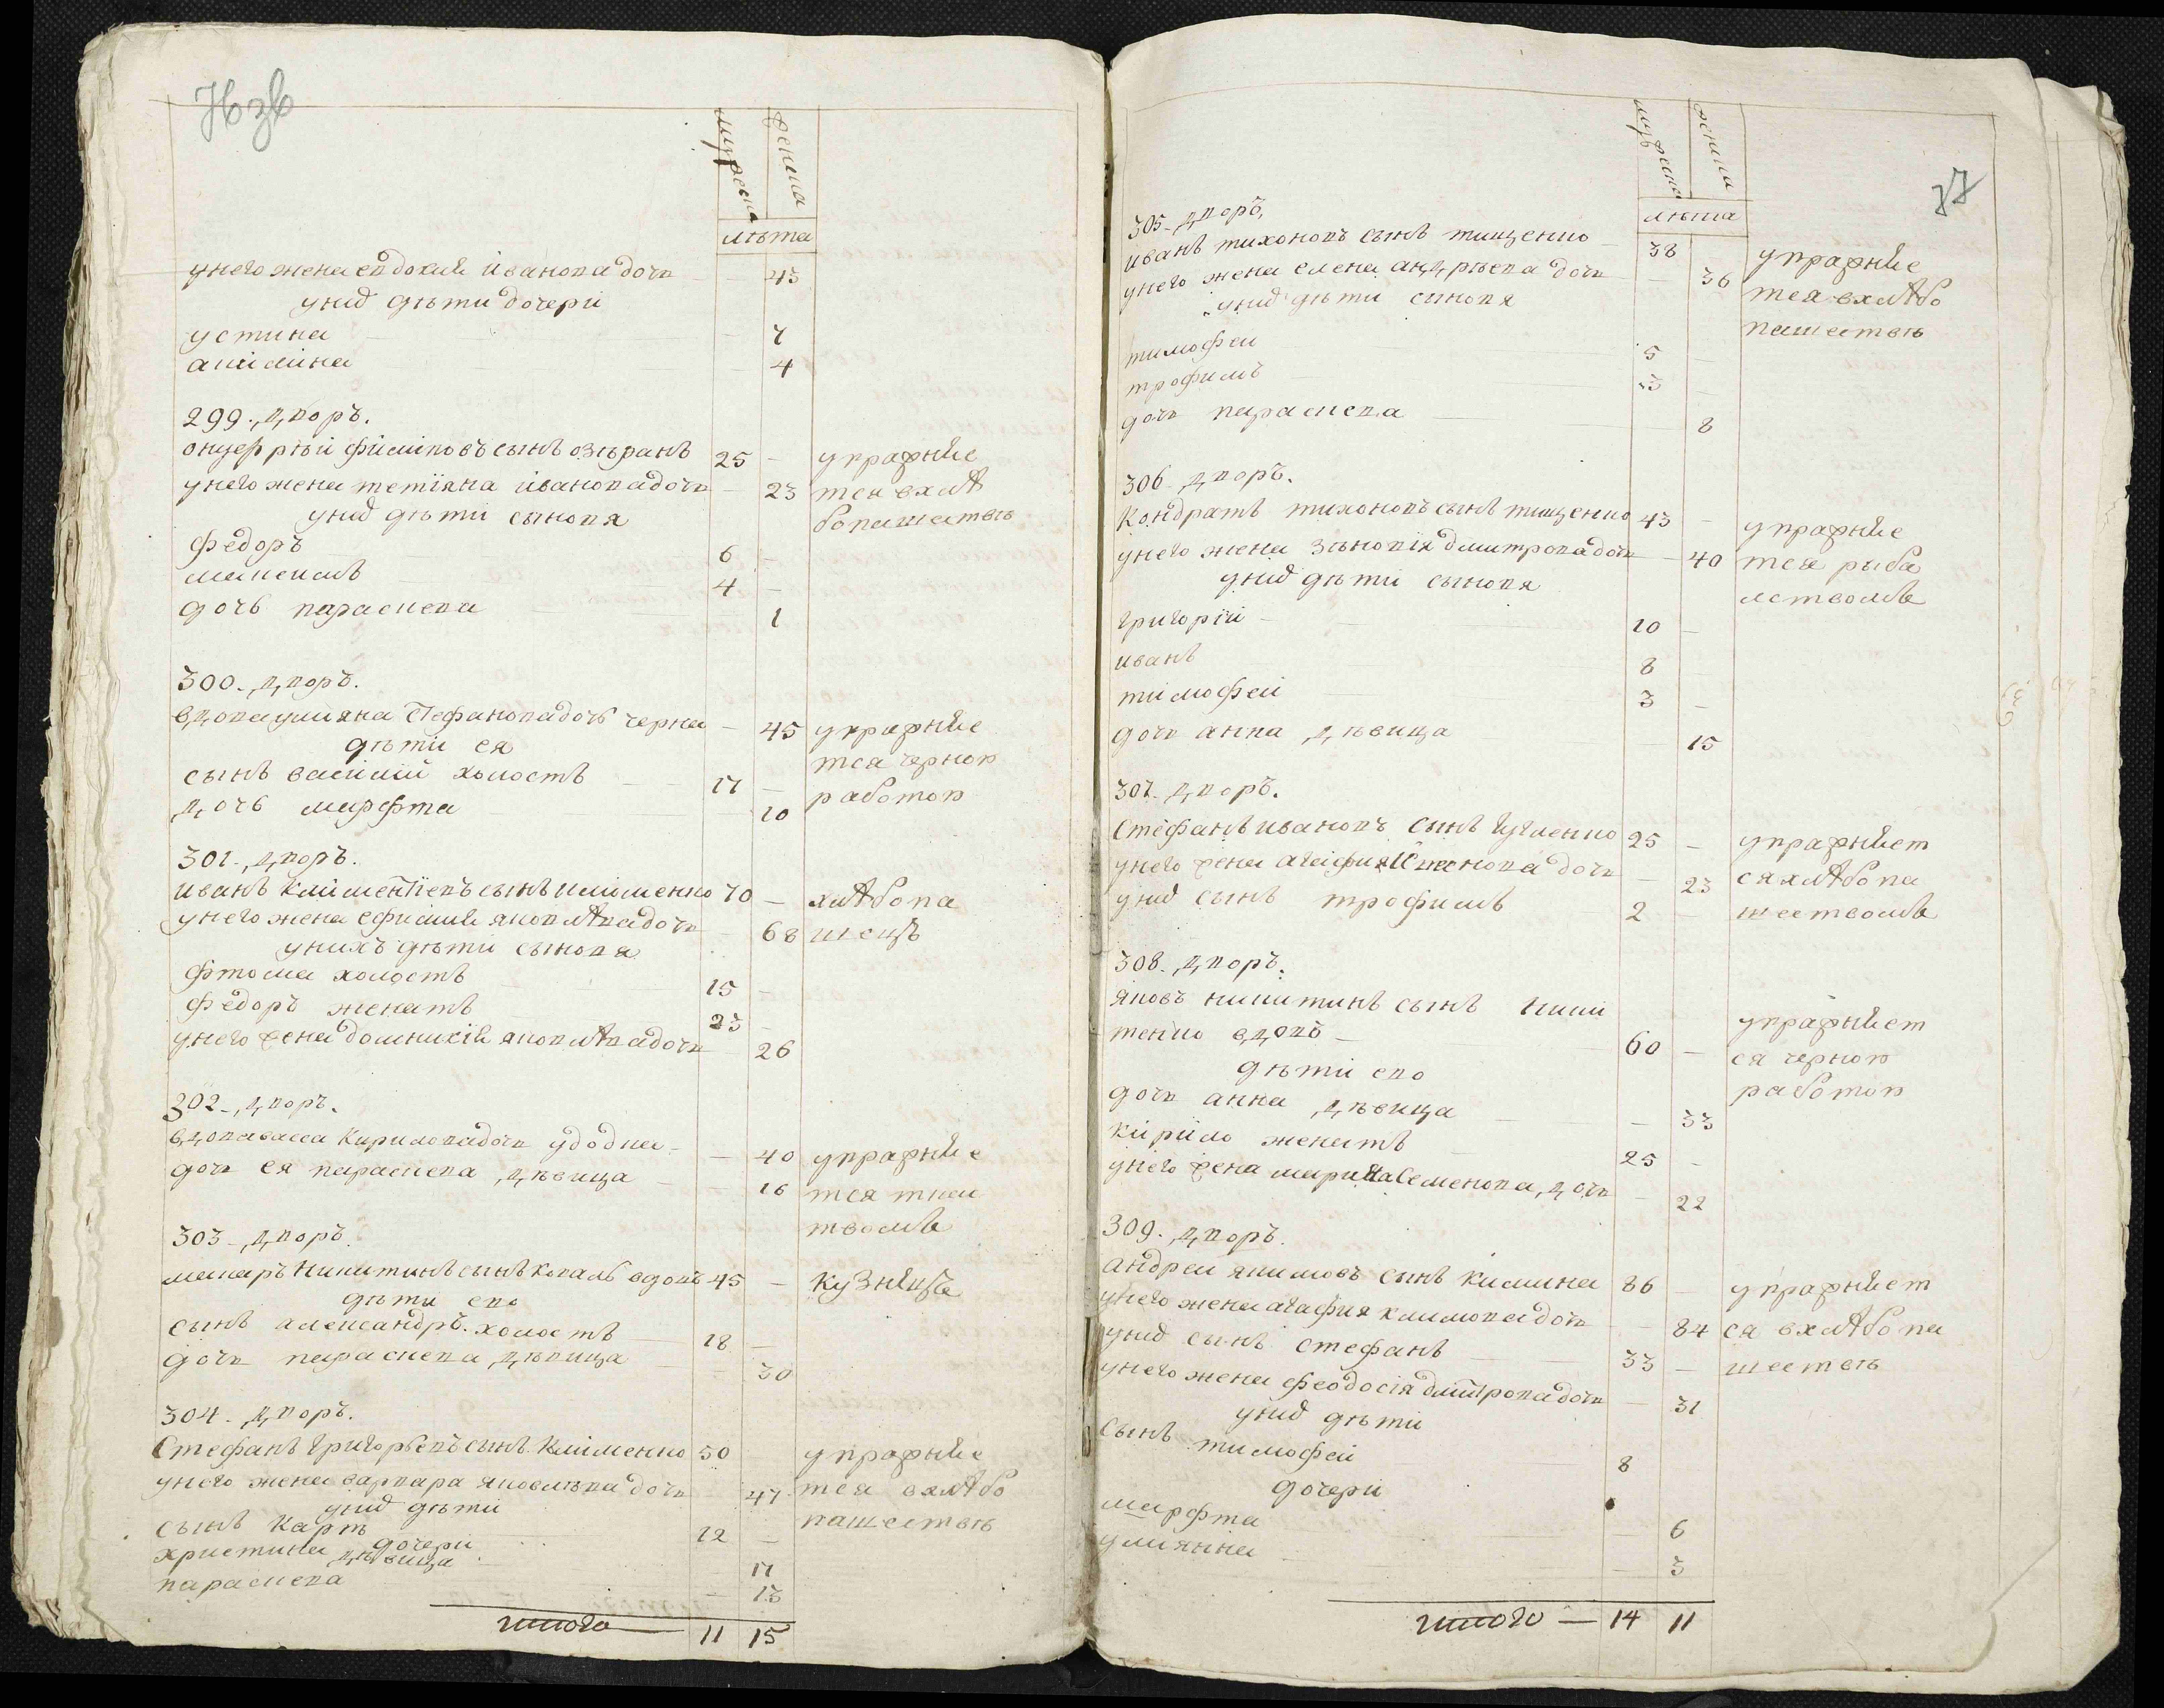 мужеска
женска
лѣта
у него жена евдокия иванова дочь 43
у них дѣти дочери
устина 7
акилина 4
299. дворъ.
онуфрѣй филиповъ сынъ озѣранъ 25 упражняе
у него жена тетіяна иванова дочь 23 тся в хлѣ
у них дѣти сыновя бопашествѣ
федоръ 6
максимъ 4
дочь параскева 1
300. дворъ.
вдова улияна стефанова дочь черна 45 упражняе
дѣти ея тся черною
сынъ василій холостъ 17 работою
дочь марфта 10
301. дворъ.
иванъ климентіевъ сынъ клименко 70 хлѣбопа
у него жена ефимия яковлѣва дочь 68 шецъ
у нихъ дѣти сыновя
фтома холостъ 15
федоръ женатъ 23
у него жена домникія яковлѣва дочь 26
302. дворъ.
вдова васса кирилова дочь удодка 40 упражняе
дочь ея параскева дѣвица 16 тся ткац
твомъ
303. дворъ.
макаръ никитинъ сынъ коваль вдовъ 45 кузнѣцъ
дѣти ево
сынъ александръ холостъ 18
дочь параскева дѣвица 30
304. дворъ.
стефанъ григорьевъ сынъ клименко 50 упражняе
у него жена варвара яковлѣва дочь 47 тся в хлѣбо
у них дѣти пашествѣ
сынъ карпъ 12
дочери
христина дѣвица 17
параскева 13
итого 11 15
37
мужеска
женска
лѣта
305. дворъ.
иванъ тихоновъ сынъ тищенко 38 упражняе
у него жена елена андрѣева дочь 36 тся в хлѣбо
у них дѣти сыновя пашествѣ
тимофей 5
трофимъ 3
дочь параскева 8
306. дворъ.
кондратъ тихоновъ сынъ тищенко 43 упражняе
у него жена зѣновія дмитрова дочь 40 тся рыба
у них дѣти сыновя лствомъ
григорій 10
иванъ 8
тимофей 3
дочь анна дѣвица 15
307. дворъ.
стефанъ ивановъ сынъ 25 упражняет
у него жена агафия дочь 23 ся хлѣбопа
у них сынъ трофимъ 2 шествомъ
308. дворъ.
яковъ никитинъ сынъ ники упражняет
тенко вдовъ 60 ся черною
дѣти ево работою
дочь анна дѣвица 33
кирило женатъ 25
у него жена марина семенова дочь 22
309. дворъ.
андрей якимовъ сынъ 86 упражняет
у него жена агафия климова дочь 84 ся в хлѣбопа
у них сынъ стефанъ 33 шествѣ
у него жена феодосія дмитрова дочь 31
у них дѣти
сынъ тимофей 8
дочери
марфта 6
улиянна 3
итого 14 11